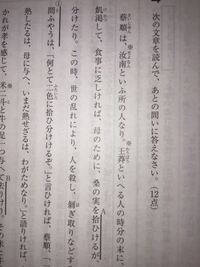 次の文章を読んで、あとの問いに答えなさい。(12点)
蔡順は、汝南といふ所の人なり。王莽といへる人の時分の末に、
飢渇して、食事に乏しければ、母のために、桑の実を拾ひけるが、
分けたり。この時、世の乱れにより、人を殺し、剝ぎ取りなどす
間ふやうは、「何とて二色に拾ひ分けけるぞ。」と言ひければ、蔡順、「一
熟したるは、母に与へ、いまだ熟せざるは、わがためなり。」と語りければ、
かれが孝を感じて、米二斗と牛の足一つ与へて去りけり。その米と